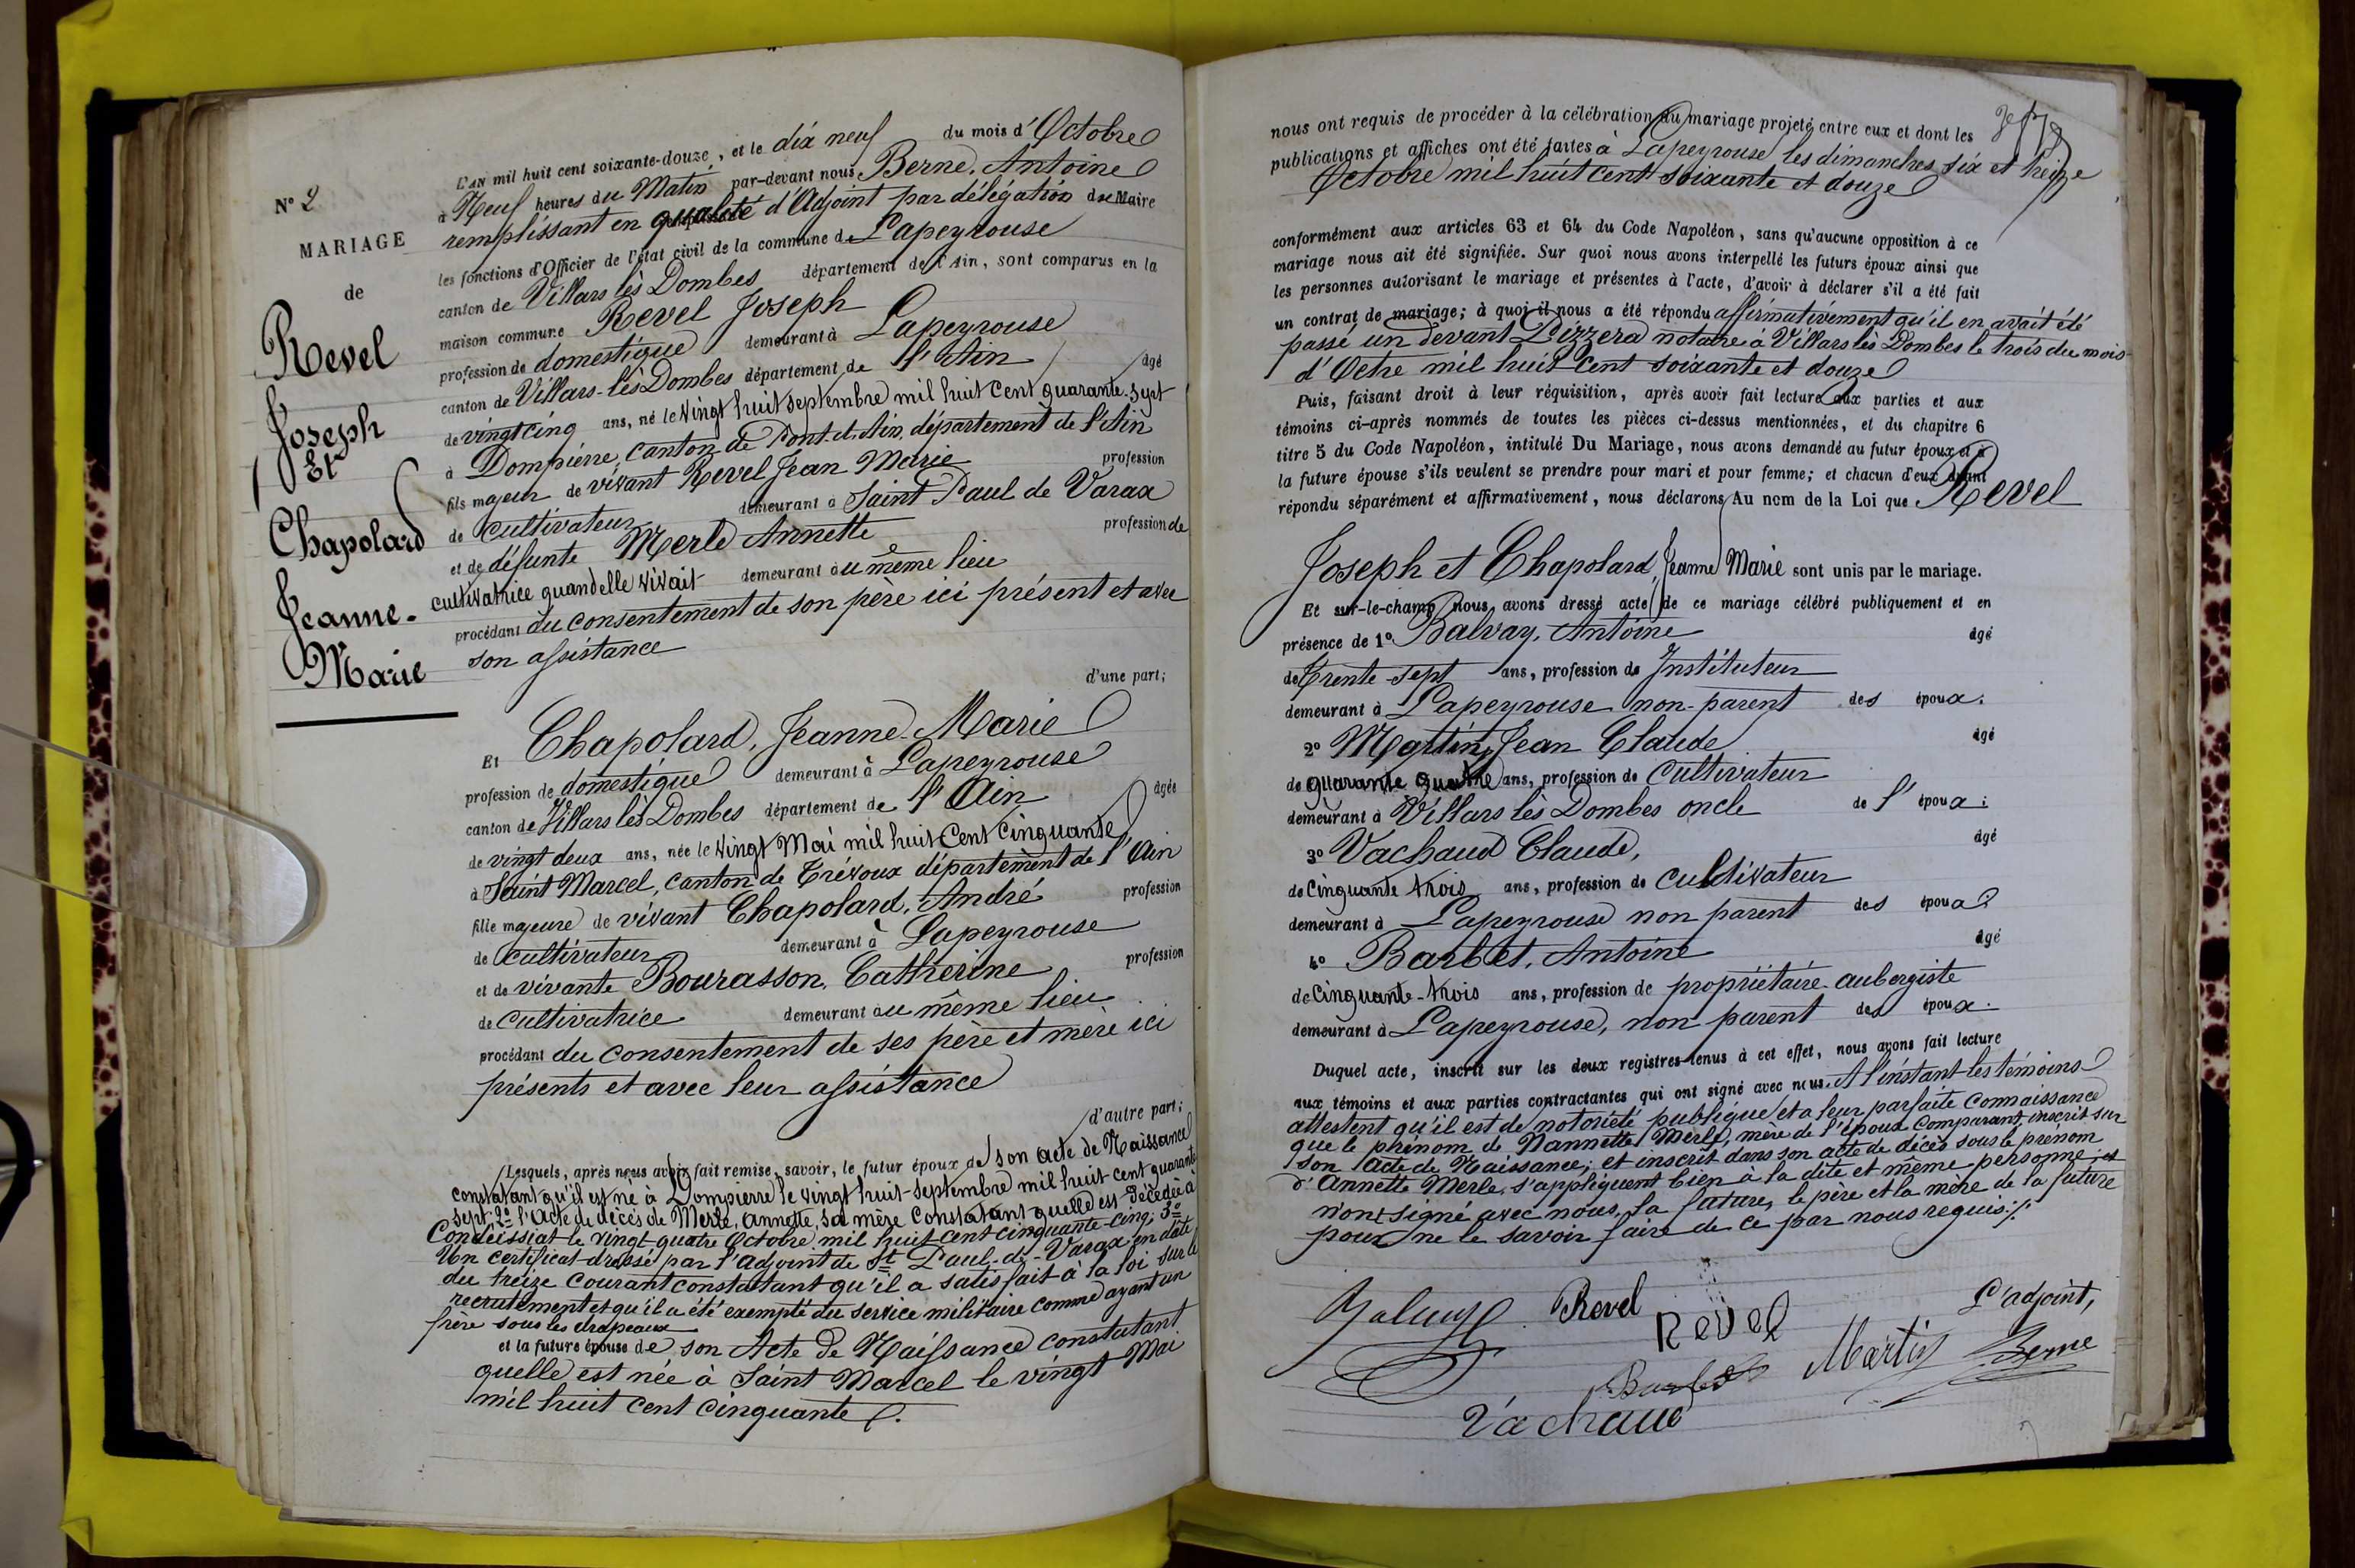 N° 2
MARIAGE
de
Revel
Joseph
Et
Chapolard
Jeanne-
Marie
L'AN mil huit cent soixante-douze, et le dix neuf du mois d'Octobre
à Neuf heures du Matin par-devant nous Berne, Antoine
remplissant en qualité d'Adjoint par délégation du Maire
les fonctions d'Officier de l'état civil de la commune de Lapeyrouse
canton de Villars lès Dombes département de l'Ain, sont comparus en la
maison commune Revel Joseph
profession de domestique demeurant à Lapeyrouse
canton de Villars-lès Dombes département de l'Ain âgé
de vingt cinq ans, né le vingt huit septembre mil huit cent quarante-sept
à Dompierre, canton de Pont-d'Ain, département de l'Ain
fils majeur de vivant Revel Jean Marie profession
de cultivateur demeurant à Saint Paul de Varax
et de défunte Merle Annette profession de
cultivatrice quand elle vivait demeurant au même lieu
procédant du consentement de son père ici présent et avec
son assistance
d'une part;
Et Chapolard, Jeanne-Marie
profession de domestique demeurant à Lapeyrouse
canton de Villars lès Dombes département de l'Ain âgée
de vingt deux ans, née le vingt Mai mil huit Cent Cinquante
à Saint Marcel, canton de Trévoux département de l'Ain
fille majeure de vivant Chapolard, André profession
de cultivateur demeurant à Lapeyrouse
et de vivante Bourasson, Catherine profession
de cultivatrice demeurant au même lieu
procédant du consentement de ses père et mère ici
présents et avec leur assistance
d'autre part;
Lesquels, après nous avoir fait remise, savoir, le futur époux de son acte de Naissance
constatant qu'il est né à Dompierre le vingt huit-septembre mil huit cent quarante
sept; 2° l'acte de décès de Merle, Annette, sa mère constatant quelle est décédée à
Condeissiat le vingt quatre Octobre mil huit cent cinquante-cinq; 3°
Un certificat dressé par l'adjoint de St Paul-de-Varax en date
du treize courant constatant qu'il a satisfait à la loi sur le
recrutement et qu'il a été exempté du service militaire comme ayant un
frère sous les drapeaux
et la future épouse de son Acte de Naissance constatant
quelle est née à Saint Marcel le vingt Mai
mil huit cent cinquante.
nous ont requis de procéder à la célébration du mariage projeté entre eux et dont les
publications et affiches ont été faites à Lapeyrouse les dimanches six et treize
Octobre mil huit cent soixante et douze
conformément aux articles 63 et 64 du Code Napoléon, sans qu'aucune opposition à ce
mariage nous ait été signifiée. Sur quoi nous avons interpellé les futurs époux ainsi que
les personnes autorisant le mariage et présentes à l'acte, d'avoir à déclarer s'il a été fait
un contrat de mariage; à quoi il nous a été répondu affirmativement qu'il en avait été
passé un devant Pizzera notaire à Villars lès Dombes le trois du mois
d'Octre mil huit-cent soixante et douze
Puis, faisant droit à leur réquisition, après avoir fait lecture aux parties et aux
témoins ci-après nommés de toutes les pièces ci-dessus mentionnées, et du chapitre 6
titre 5 du Code Napoléon, intitulé Du Mariage, nous avons demandé au futur époux et à
la future épouse s'ils veulent se prendre pour mari et pour femme; et chacun d'eux ayant
répondu séparément et affirmativement, nous déclarons Au nom de la Loi que Revel
Joseph et Chapolard, Jeanne Marie sont unis par le mariage.
Et sur-le-champ nous avons dressé acte de ce mariage célébré publiquement et en
présence de 1° Balvay, Antoine âgé
de Trente-sept ans, profession de Instituteur
demeurant à Lapeyrouse non-parent des époux.
2° Martin, Jean Claude âgé
de quarante quatre ans, profession de cultivateur
demeurant à Villars lès Dombes oncle de l'époux:
3° Vachaud Claude, âgé
de Cinquante trois ans, profession de cultivateur
demeurant à Lapeyrouse non parent des époux:
4° Barbet, Antoine âgé
de Cinquante-trois ans, profession de propriétaire-aubergiste
demeurant à Lapeyrouse, non parent des époux.
Duquel acte, inscrit sur les deux registres tenus à cet effet, nous avons fait lecture
aux témoins et aux parties contractantes qui ont signé avec nous. A l'instant les témoins
attestent qu'il est de notoriété publique et a leur parfaite connaissance
que le phénom de Nannette Merle, mère de l'époux Comparant, inscrit sur
son Acte de Naissance, et inscrit dans son acte de décès sous le prénom
d'Annette Merle, s'appliquent bien à la dite et même personne; et
n'ont signé avec nous, la future, le père et la mère de la future
pour ne le savoir faire de ce par nous requis./.
Revel
Revel
L'adjoint,
Barbet
Martin
Berne
Vachaud